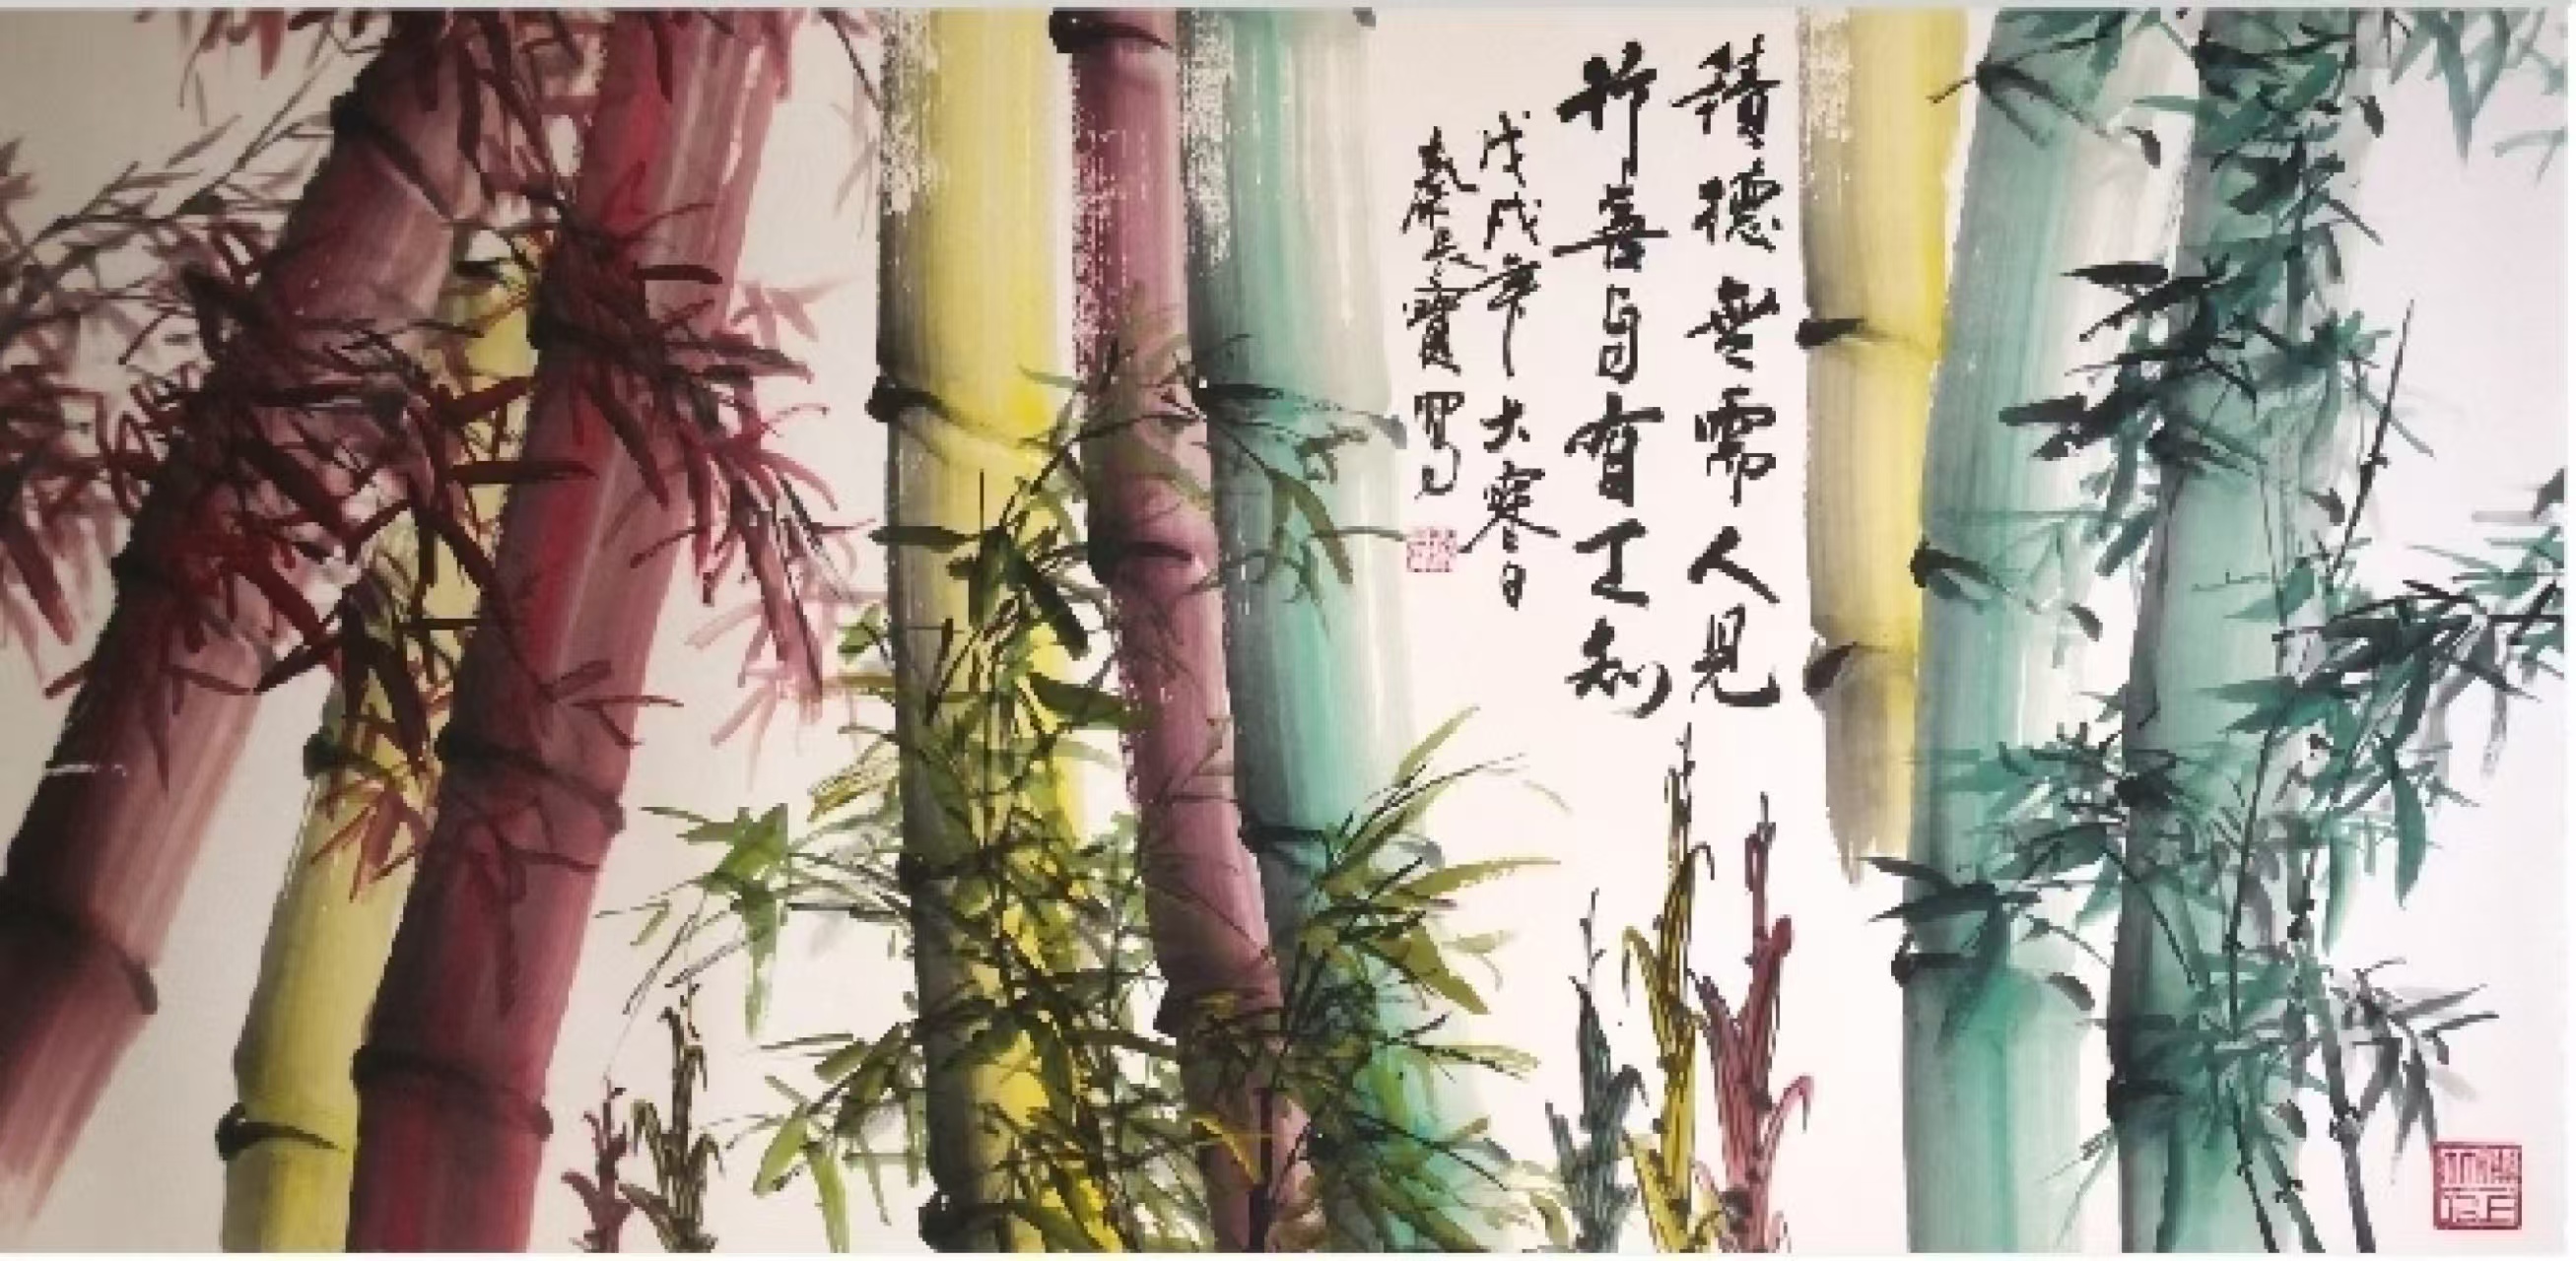 積德無需人見
行善自有天知
戊戌年大寒日
長寶寫